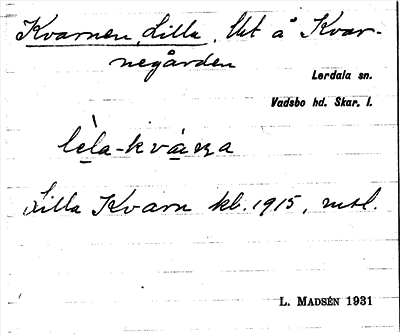 Kvarnen, Lilla, Ut å Kvar-
negården
Lerdala sn.
Vadsbo hd. Skar. l.
Lilla Kvarn kb. 1915, mtl.
L. MADSÉN 1931